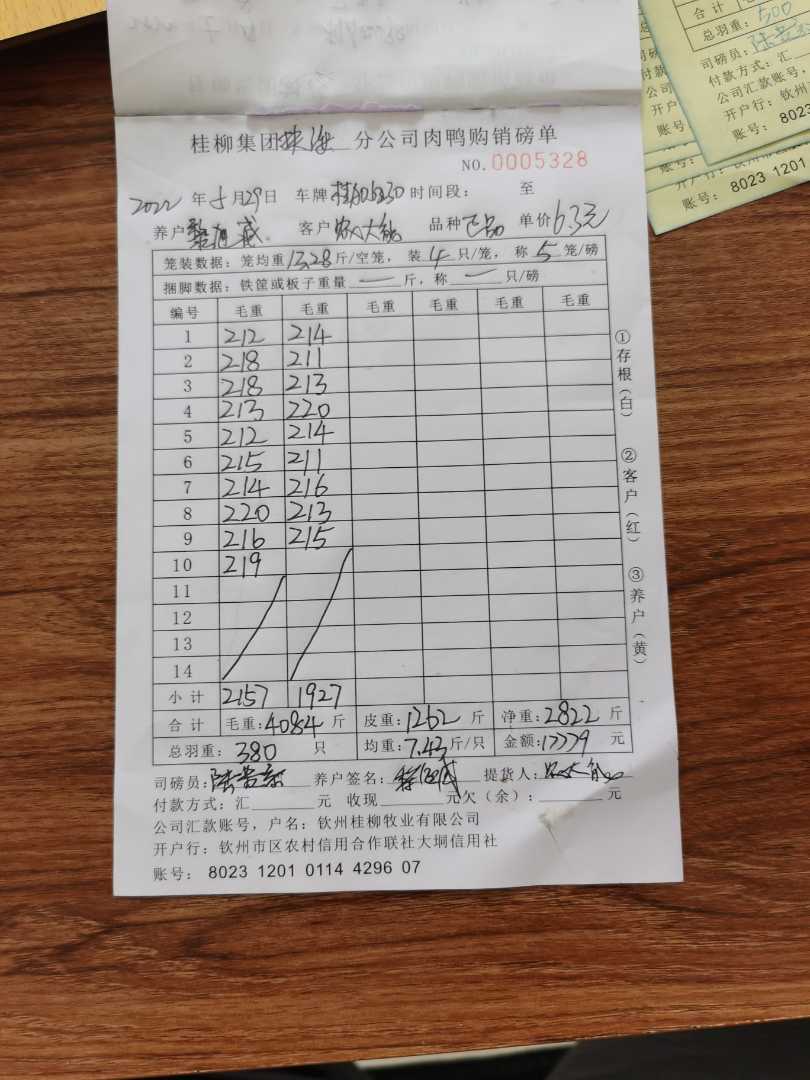 桂柳集团珠海分公司肉鸭购销磅单
NO.0005328
2022年5月29日 车牌 时间段: 至
养户 客户 品种正品 单价6.3元
笼装数据: 笼均重13.28斤/空笼, 装4只/笼, 称5笼/磅
捆脚数据: 铁筐或板子重量—斤, 称—只/磅
编号 毛重 毛重 毛重 毛重 毛重 毛重
1 212 214
2 218 211
3 218 213
4 213 220
5 212 214
6 215 211
7 214 216
8 220 213
9 216 215
10 219
11
12
13
14
小计 2157 1927
合计 毛重:4084斤 皮重:1262斤 净重:2822斤
总羽重: 380 只 均重:7.43斤/只 金额:17779元
司磅员: 养户签名: 提货人:
付款方式: 汇 元 收现 元欠(余): 元
公司汇款账号, 户名: 钦州桂柳牧业有限公司
开户行: 钦州市区农村信用合作联社大垌信用社
账号: 8023 1201 0114 4296 07
①存根(白) ②客户(红) ③养户(黄)
合计
总羽重: 500
司磅员:
付款方式: 汇
公司汇款账号
开户行: 钦州
账号: 8023
账号: 8023 1201